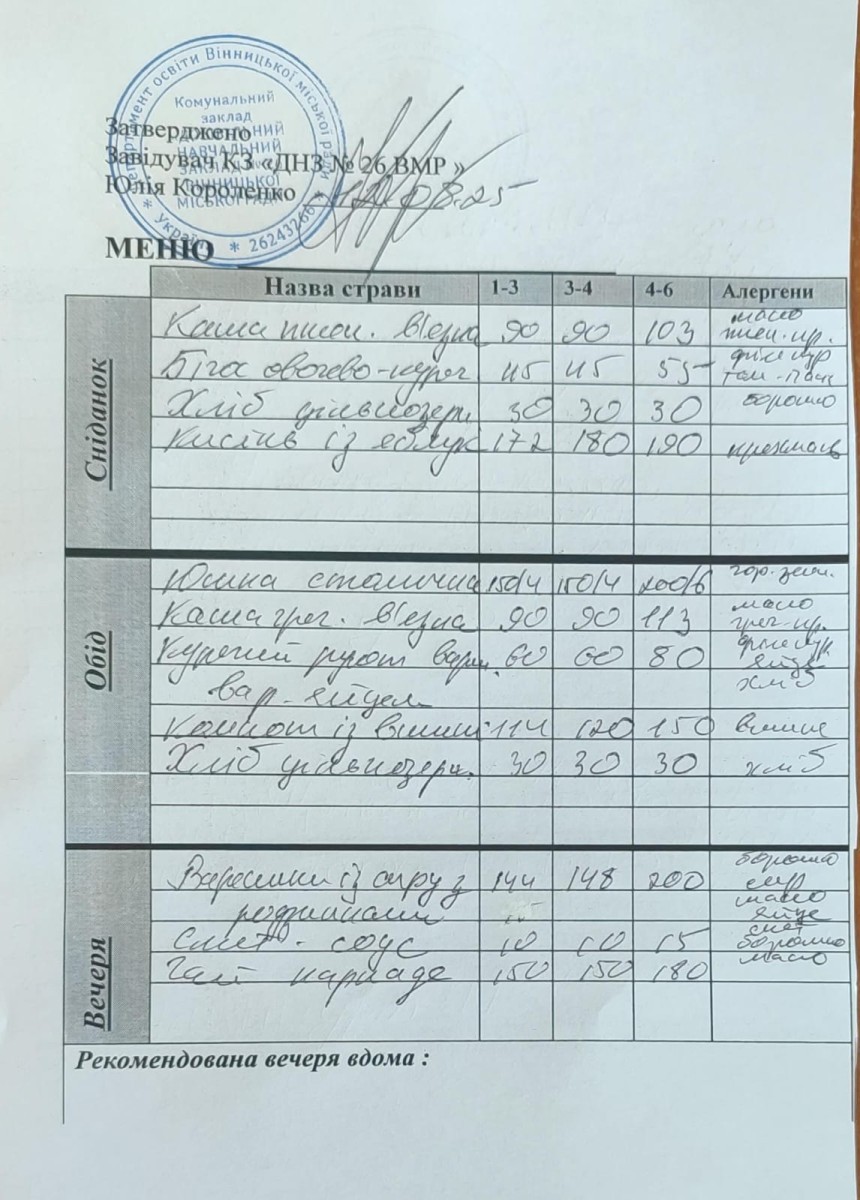 Департамент освіти Вінницької міської ради
Комунальний
заклад
НАВЧАЛЬНИЙ
ЗАКЛАД
ВІННИЦЬКОЇ
МІСЬКОЇ РАДИ
* Україна * 26243266 *
Затверджено
Завідувач КЗ «ДНЗ № 26 ВМР »
Юлія Короленко 12.08.25
МЕНЮ
Назва страви 1-3 3-4 4-6 Алергени
Сніданок
масло
Каша пшен. в'язка 90 90 103 пшен. кр.
філе кур
Біга овочево-куряч. 45 45 55 том-паст
Хліб цільнозерн 30 30 30 борошно
Кисіль із яблук 172 180 190 крохмаль
Обід
Юшка столична 150/4 150/4 200/6 гор. зелен.
масло
Каша греч. в'язка 90 90 113 греч-кр.
філе кур.
Курячий рулет варен. 60 60 80 яйце
вар-яйцем хліб
Компот із вишні 114 120 150 вишне
Хліб цільнозерн. 30 30 30 хліб
Вечеря
борошно
Вареники із сиру з 144 148 200 сир
масло
родзинками яйце
смет
Смет - соус 10 10 15 борошно
масло
Чай каркаде 150 150 180
Рекомендована вечеря вдома :